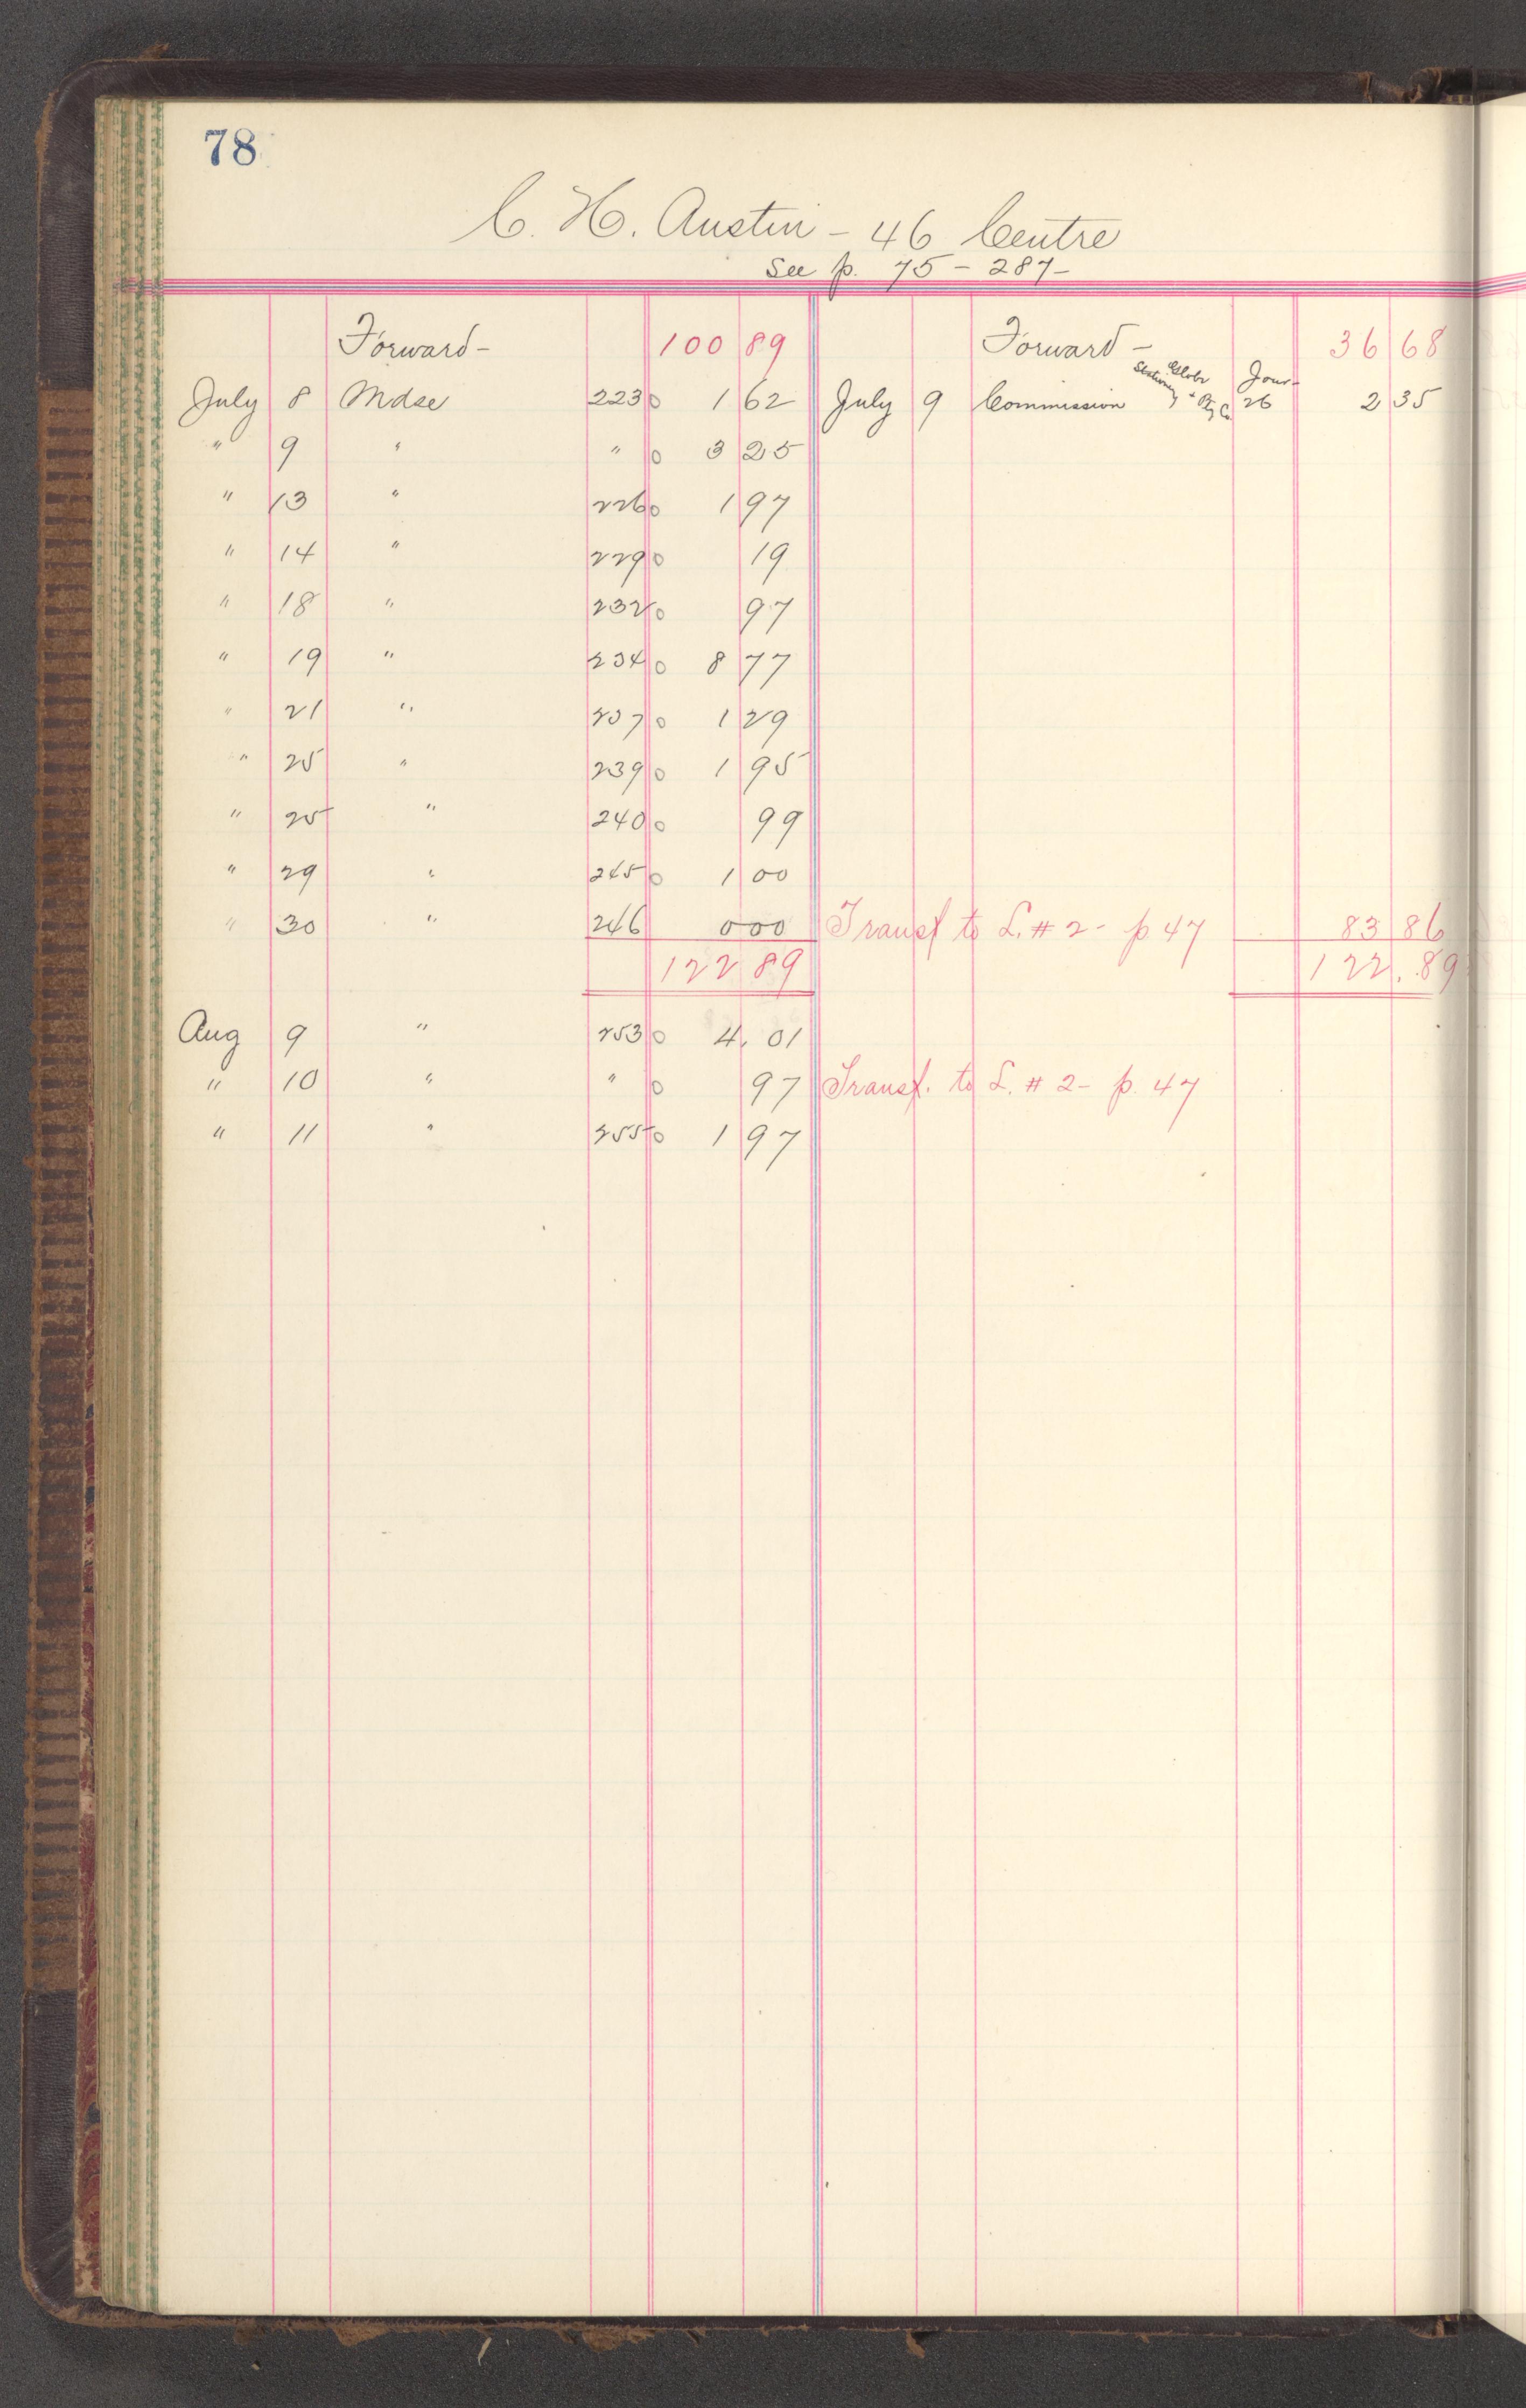 78
C. H. Austin - 46 Centre
See p. 75 - 287 -
Forward - 100 89 Forward - 36 68
July 8 Mdse 223 0 1 62 July 9 Commission Globe Stationery + Ptg Co. Jour- 26 2 35
" 9 " " 0 3 25
" 13 " 226 0 1 97
" 14 " 229 0 19
" 18 " 232 0 97
" 19 " 234 0 8 77
" 21 " 237 0 1 29
" 25 " 239 0 1 95
" 25 " 240 0 99
" 29 " 245 0 1 00
" 30 " 246 0 00 Transf to L. # 2 - p 47 83 86
122 89 122.89
Aug 9 " 253 0 4. 01
" 10 " " 0 97 Transf. to L. # 2 - p. 47
" 11 " 255 0 1 97